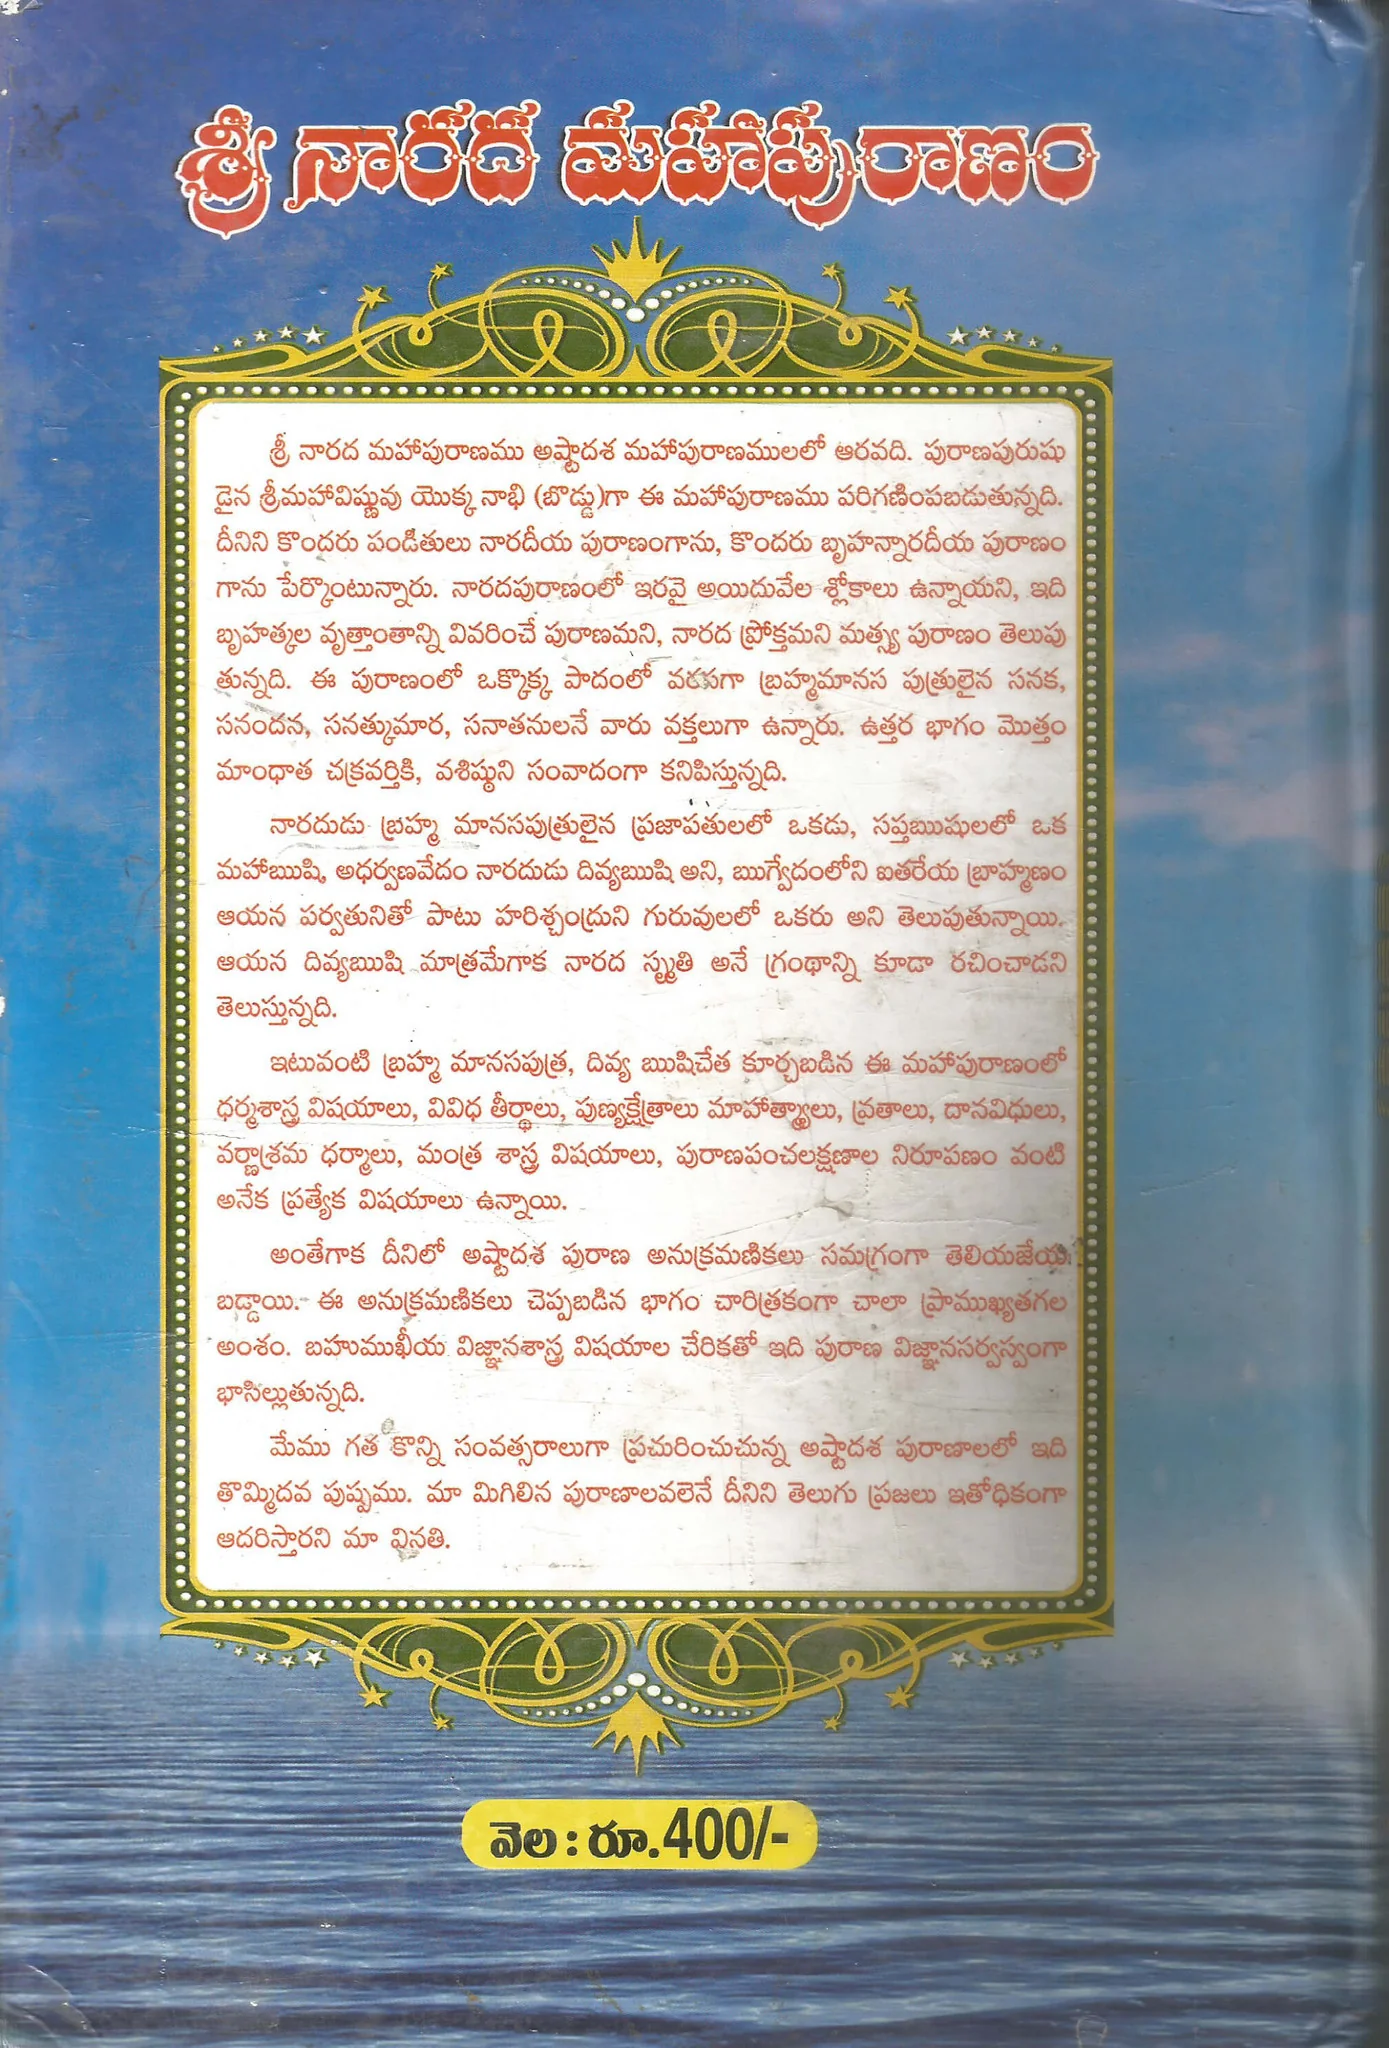 శ్రీ నారద మహాపురాణం
శ్రీ నారద మహాపురాణము అష్టాదశ మహాపురాణములలో ఆరవది. పురాణపురుషు
డైన శ్రీమహావిష్ణువు యొక్క నాభి (బొడ్డు)గా ఈ మహాపురాణము పరిగణింపబడుతున్నది.
దీనిని కొందరు పండితులు నారదీయ పురాణంగాను, కొందరు బృహన్నారదీయ పురాణం
గాను పేర్కొంటున్నారు. నారదపురాణంలో ఇరవై అయిదువేల శ్లోకాలు ఉన్నాయని, ఇది
బృహత్కల వృత్తాంతాన్ని వివరించే పురాణమని, నారద ప్రోక్తమని మత్స్య పురాణం తెలుపు
తున్నది. ఈ పురాణంలో ఒక్కొక్క పాదంలో వరసగా బ్రహ్మమానస పుత్రులైన సనక,
సనందన, సనత్కుమార, సనాతనులనే వారు వక్తలుగా ఉన్నారు. ఉత్తర భాగం మొత్తం
మాంధాత చక్రవర్తికి, వశిష్ఠుని సంవాదంగా కనిపిస్తున్నది.
నారదుడు బ్రహ్మ మానసపుత్రులైన ప్రజాపతులలో ఒకడు, సప్తఋషులలో ఒక
మహాఋషి, అధర్వణవేదం నారదుడు దివ్యఋషి అని, ఋగ్వేదంలోని ఐతరేయ బ్రాహ్మణం
ఆయన పర్వతునితో పాటు హరిశ్చంద్రుని గురువులలో ఒకరు అని తెలుపుతున్నాయి.
ఆయన దివ్యఋషి మాత్రమేగాక నారద స్మృతి అనే గ్రంథాన్ని కూడా రచించాడని
తెలుస్తున్నది.
ఇటువంటి బ్రహ్మ మానసపుత్ర, దివ్య ఋషిచేత కూర్చబడిన ఈ మహాపురాణంలో
ధర్మశాస్త్ర విషయాలు, వివిధ తీర్థాలు, పుణ్యక్షేత్రాలు మాహాత్మ్యాలు, వ్రతాలు, దానవిధులు,
వర్ణాశ్రమ ధర్మాలు, మంత్ర శాస్త్ర విషయాలు, పురాణపంచలక్షణాల నిరూపణం వంటి
అనేక ప్రత్యేక విషయాలు ఉన్నాయి.
అంతేగాక దీనిలో అష్టాదశ పురాణ అనుక్రమణికలు సమగ్రంగా తెలియజేయ
బడ్డాయి. ఈ అనుక్రమణికలు చెప్పబడిన భాగం చారిత్రకంగా చాలా ప్రాముఖ్యతగల
అంశం. బహుముఖీయ విజ్ఞానశాస్త్ర విషయాల చేరికతో ఇది పురాణ విజ్ఞానసర్వస్వంగా
భాసిల్లుతున్నది.
మేము గత కొన్ని సంవత్సరాలుగా ప్రచురించుచున్న అష్టాదశ పురాణాలలో ఇది
తొమ్మిదవ పుష్పము. మా మిగిలిన పురాణాలవలెనే దీనిని తెలుగు ప్రజలు ఇతోధికంగా
ఆదరిస్తారని మా వినతి.
వెల : రూ.400/-